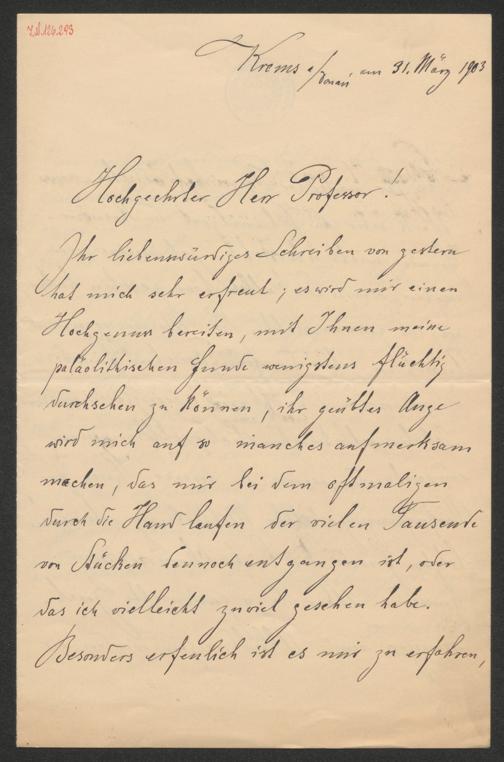 I.N. 126.293
Krems a/Donau am 31. März 1903
Hochgeehrter Herr Professor!
Ihr liebenswürdiges Schreiben von gestern
hat mich sehr erfreut; es wird mir einen
Hochgenuss bereiten, mit Ihnen meine
paläolithischen Funde wenigstens flüchtig
durchsehen zu können, ihr geübtes Auge
wird mich auf so manches aufmerksam
machen, das mir bei dem oftmaligen
durch die Hand laufen der vielen Tausende
von Stücken dennoch entgangen ist, oder
das ich vielleicht zuviel gesehen habe.
Besonders erfeulich ist es mir zu erfahren,